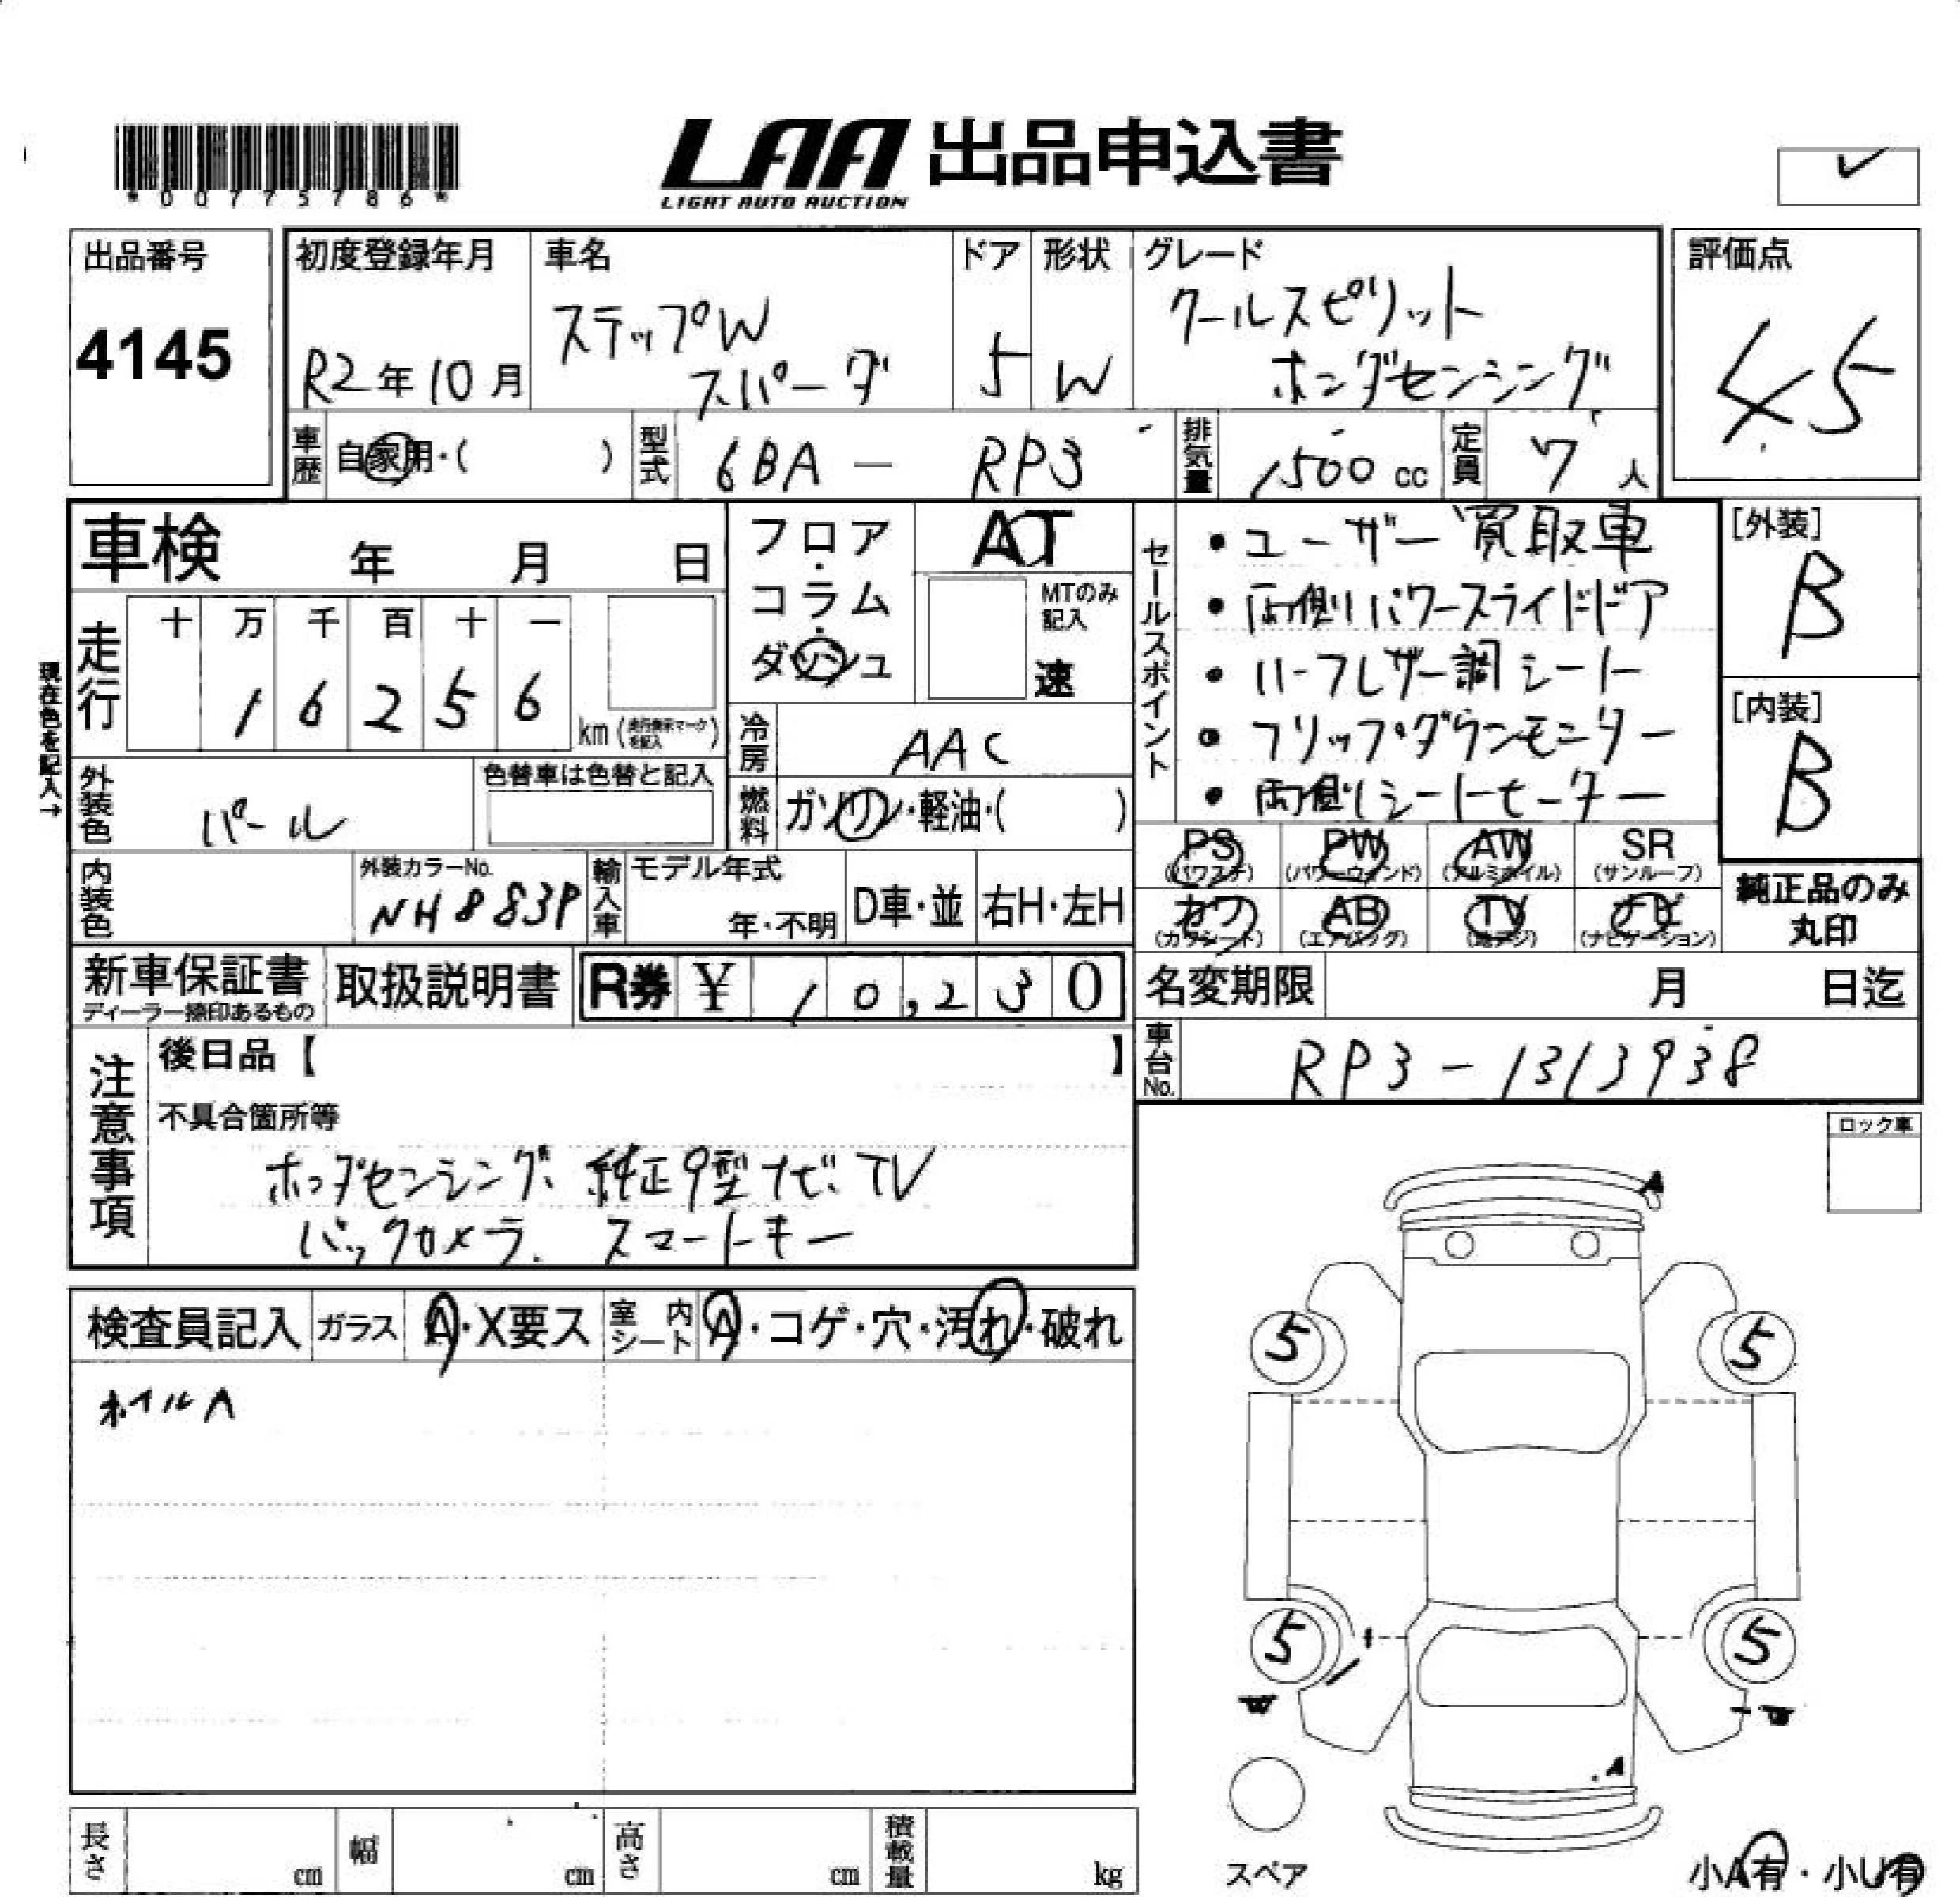 *00775786*
LAA 出品申込書
LIGHT AUTO AUCTION
出品番号
4145
初度登録年月
R2年10月
車名
ステップW
スパーダ
ドア
5
形状
W
グレード
クールスピリット
ホンダセンシング
評価点
4.5
車歴
自家用・( )
型式
6BA - RP3
排気量
1500 cc
定員
7人
車検 年 月 日
フロア・
コラム・
ダッシュ
AT
MTのみ
記入
速
セールスポイント
・ユーザー買取車
・両側パワースライドドア
・ハーフレザー調シート
・フリップダウンモニター
・両側シートヒーター
[外装]
B
[内装]
B
現在色を記入→
走行
十 万 千 百 十 一
1 6 2 5 6
km (走行換示マークを記入)
冷房
AAC
外装色
パール
色替車は色替と記入
燃料
ガソリン・軽油・( )
内装色
外装カラーNo.
NH883P
輸入車
モデル年式
年・不明
D車・並
右H・左H
PS
(パワステ)
PW
(パワーウィンド)
AW
(アルミホイル)
SR
(サンルーフ)
カワ
(カワシート)
AB
(エアバッグ)
TV
(地デジ)
ナビ
(ナビゲーション)
純正品のみ
丸印
新車保証書
ディーラー捺印あるもの
取扱説明書
R券 ¥ 10,230
名変期限 月 日迄
車台No.
RP3-1313938
注意事項
後日品【 】
不具合箇所等
ホンダセンシング、純正9型ナビ.TV
バックカメラ. スマートキー
ロック車
検査員記入
ガラス
A・X要ス
室内
シート
A・コゲ・穴・汚れ・破れ
ホイルA
A
5
5
5
5
W
W
A
スペア
小A有・小U有
長さ cm
幅 cm
高さ cm
積載量 kg